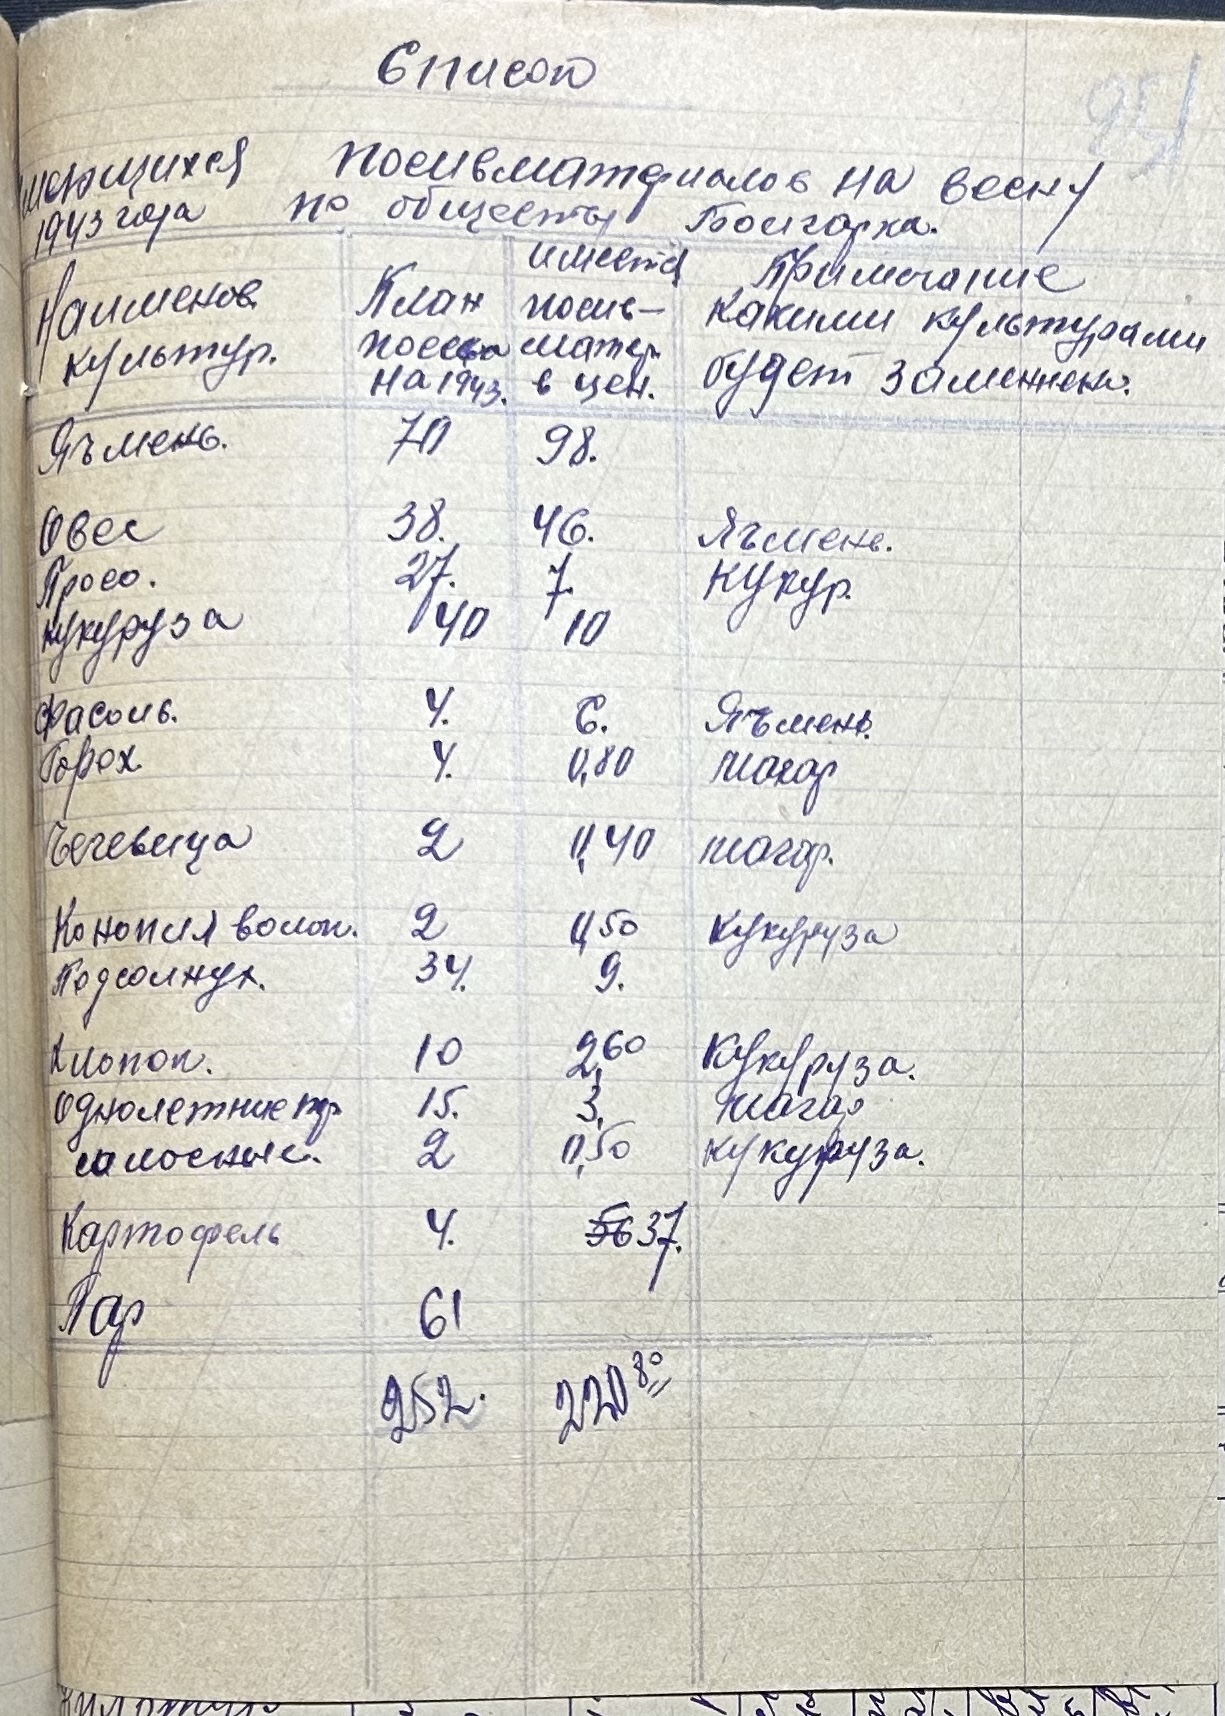 Список
имеющихся посивматериалов на весну
1943 года по обществу Болгарка.
Наименов. культур. План посева на 1943. имеется посив-матер. в цен. Примечание какими культурами будет заменнено.
Яъмень. 70 98.
Овес 38. 46. Яъмень.
Просо. 27. 7. Кукур.
Кукуруза 40 10
Фасоль. 4. 6. Яъмень.
Горох 4. 0,80
Чечевица 2 0,40
Конопля волок. 2 0,50 Кукуруза
Подсолнух. 34. 9.
Хлопок. 10 2,60 Кукуруза.
Однолетние тр 15. 3.
силосные. 2 0,50 кукуруза.
Картофель 4. 56 37.
Пар 61
252. 220 80